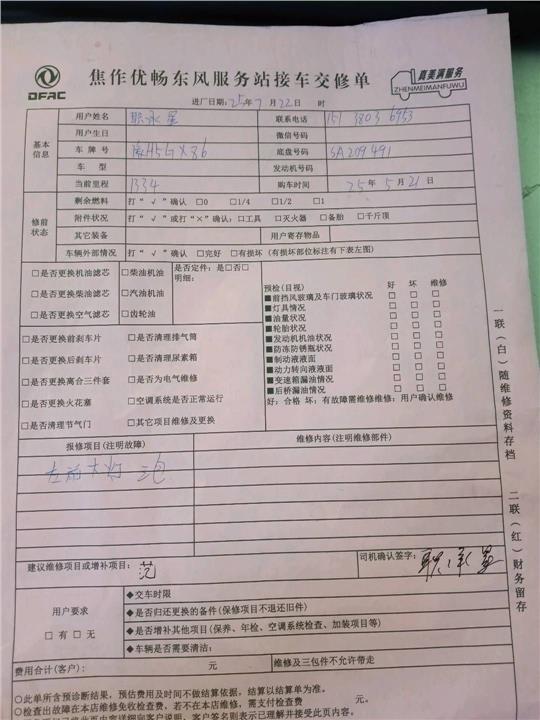 DFAC
焦作优畅东风服务站接车交修单
真美满服务
ZHENMEIMANFUWU
进厂日期: 25年7月22日 时
基本信息
用户姓名 联系电话 151 3803 6953
用户生日 微信号码
车牌号 豫H5GX86 底盘号码 SA209491
车型 发动机号码
当前里程 1334 购车时间 25年5月21日
修前状态
剩余燃料 打“√”确认 □0 □1/4 □1/2 □1
附件状况 打“√”或打“×”确认: □工具 □灭火器 □备胎 □千斤顶
其它装备 用户寄存物品
车辆外部情况 打“√”确认 □完好 □有损坏 (有损坏部位标注有下表左图)
□是否更换机油滤芯 □柴油机油 是否定件: 是□否□
明细:
□是否更换柴油滤芯 □汽油机油
□是否更换空气滤芯 □齿轮油
□是否更换前刹车片 □是否清理排气筒
□是否更换后刹车片 □是否清理尿素箱
□是否更换离合三件套 □是否为电气维修
□是否更换火花塞 □空调系统是否正常运行
□是否清理节气门 □其它项目维修及更换
预检(目视) 好 坏 维修
■前挡风玻璃及车门玻璃状况 □ □ □
■灯具情况 □ □ □
■油量状况 □ □ □
■轮胎状况 □ □ □
■发动机机油状况 □ □ □
■防冻防锈瓶状况 □ □ □
■制动液液面 □ □ □
■动力转向液液面 □ □ □
■变速箱漏油情况 □ □ □
■后桥漏油情况 □ □ □
好: 合格 坏: 有故障需维修维修: 用户确认维修
报修项目(注明故障) 维修内容(注明维修部件)
左前大灯
建议维修项目或增补项目: 司机确认签字:
用户要求
□有 □无
◆交车时限
◆是否归还更换的备件(保修项目不退还旧件)
◆是否增补其他项目(保养、年检、空调系统检查、加装项目等)
◆车辆是否需要清洁:
费用合计(客户): 元 维修及三包件不允许带走
○此单所含预诊断结果, 预估费用及时间不做结算依据, 结算以结算单为准。
○检查出故障在本店维修免收检查费, 若不在本店维修, 需支付检查费 元。
一联(白)随维修资料存档
二联(红)财务留存